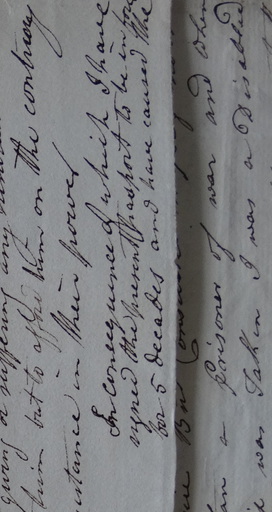 giving or suffering any
him but to afford him on the contrary
istance in their power
In consequence of which I have
signed the present Passport to be in force
for 5 decades and have caused the
ire But
an a prisoner of war and when
d was Taken I was a Disabled